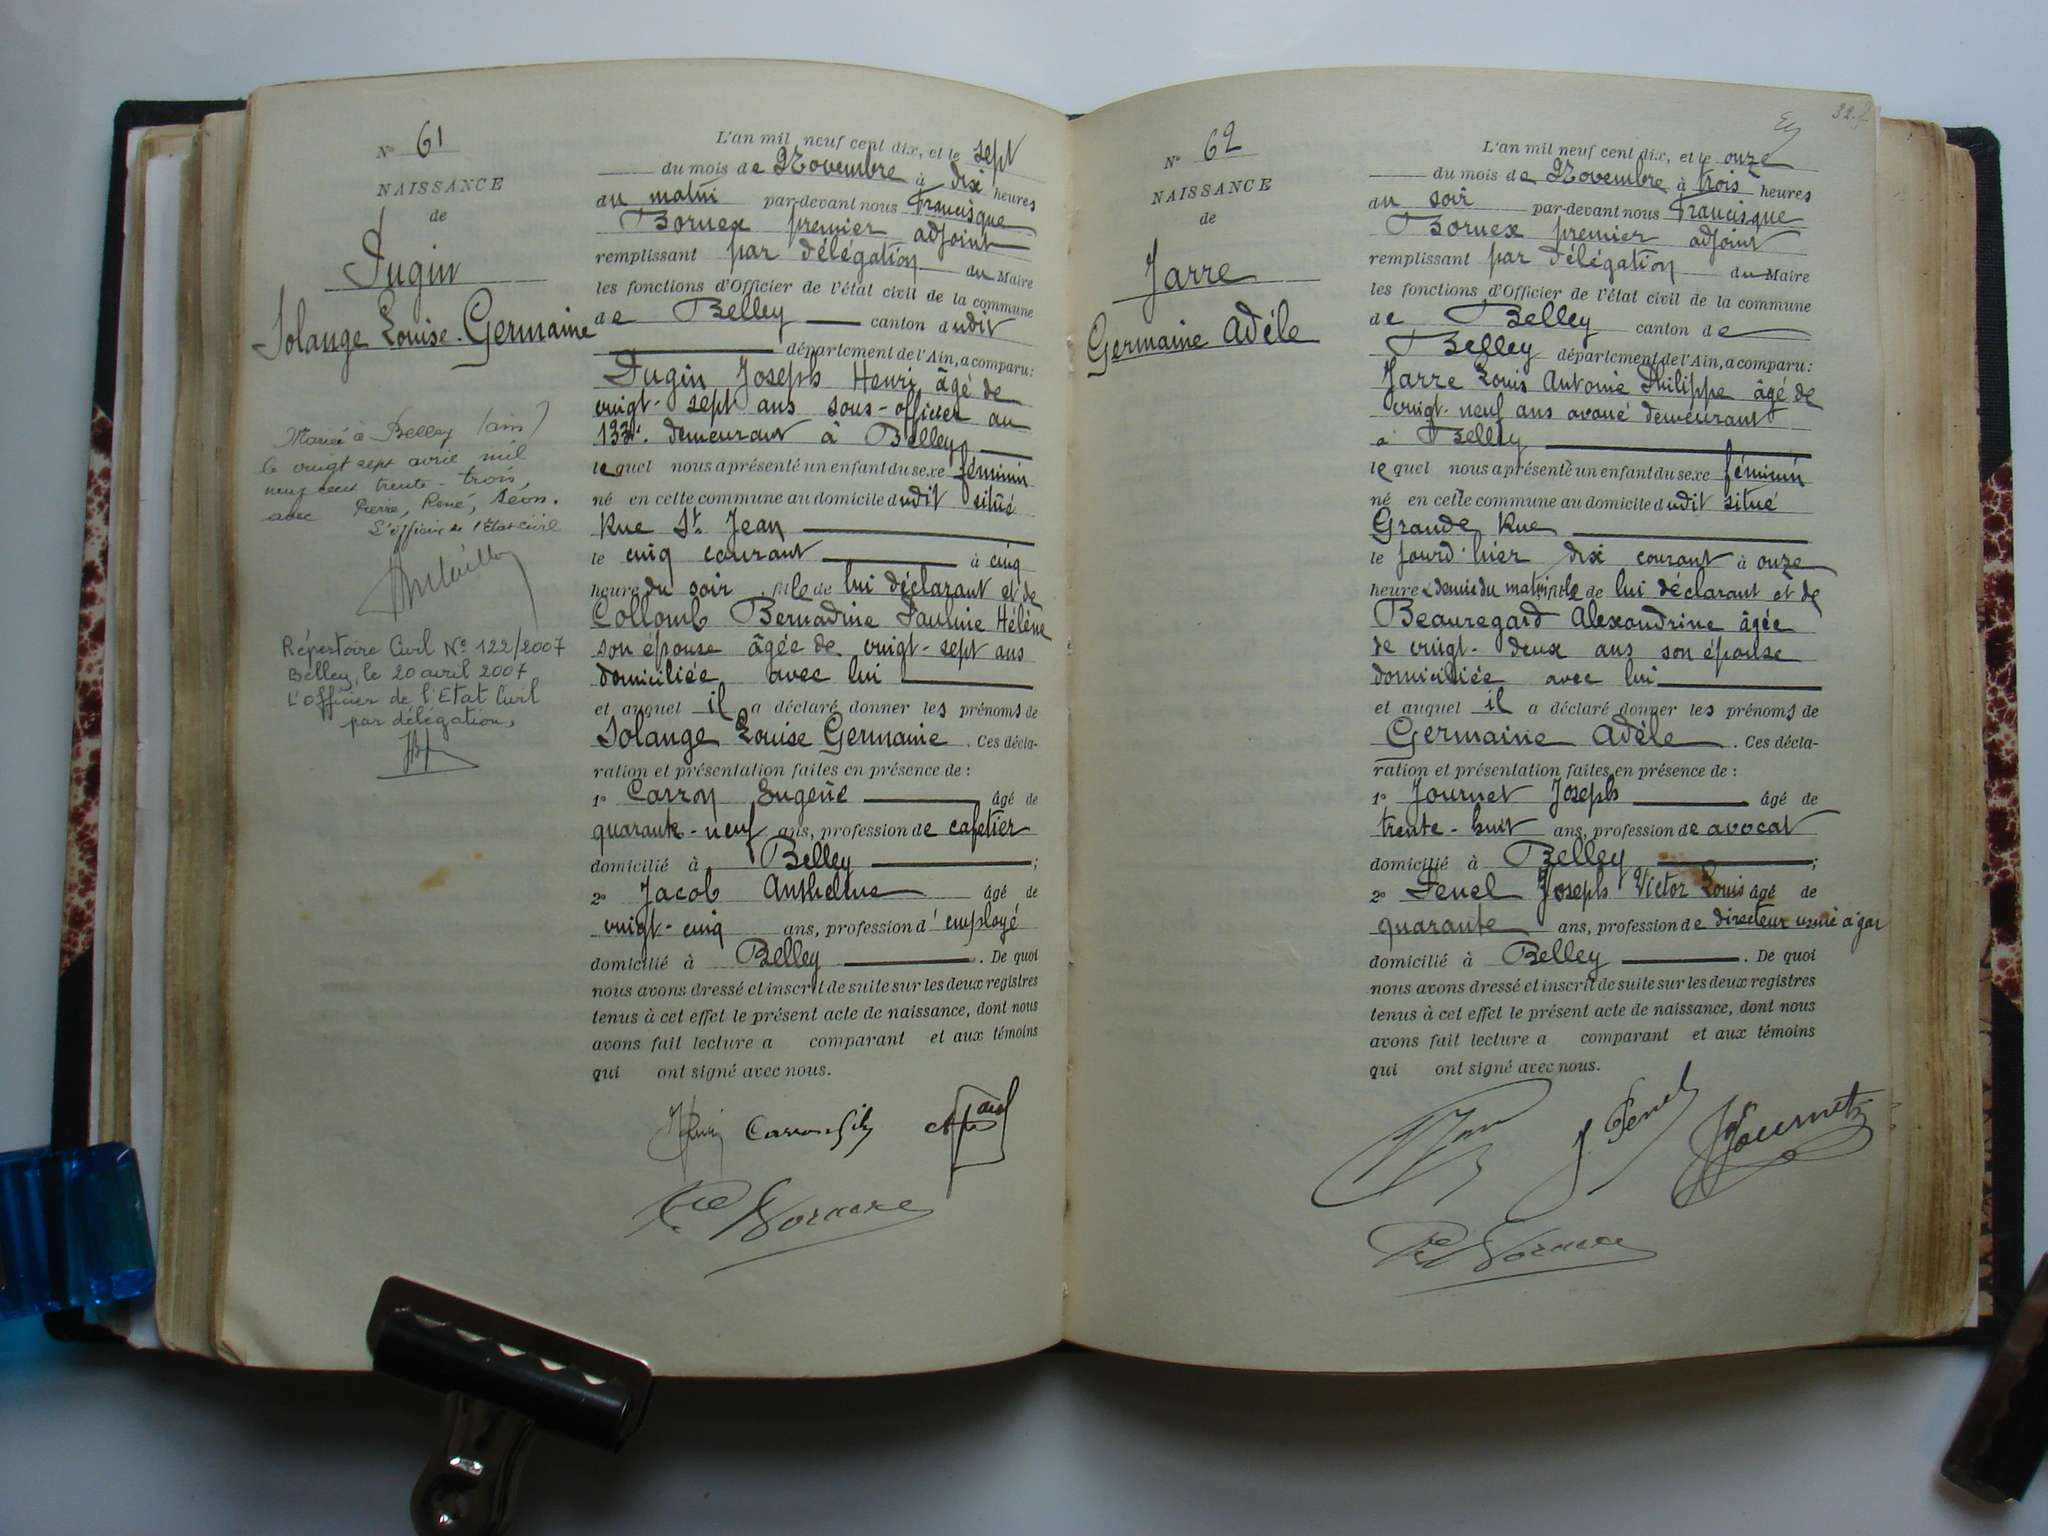 N° 61
NAISSANCE
de
Pugin
Solange Louise Germaine
Mariée à Belley (ain)
le vingt sept avril mil
neuf cent trente-trois,
avec Pierre, René, Léon.
L'officier de l'Etat civil
Répertoire Civil N° 122/2007
Belley, le 20 avril 2007
L'Officier de l'Etat Civil
par délégation,
L'an mil neuf cent dix, et le sept
du mois de Novembre à dix heures
du matin par-devant nous Francisque
Bornex premier adjoint
remplissant par délégation du Maire
les fonctions d'Officier de l'état civil de la commune
de Belley canton dudit
département de l'Ain, a comparu:
Pugin Joseph Henri âgé de
vingt-sept ans sous-officier au
133e demeurant à Belley
lequel nous a présenté un enfant du sexe féminin
né en cette commune au domicile dudit situé
Rue St. Jean
le cinq courant à cinq
heure du soir fille de lui déclarant et de
Collomb Bernadine Pauline Hélène
son épouse âgée de vingt-sept ans
domiciliée avec lui
et auquel il a déclaré donner les prénoms de
Solange Louise Germaine. Ces décla-
ration et présentation faites en présence de :
1° Carron Eugène âgé de
quarante-neuf ans, profession de cafetier
domicilié à Belley ;
2° Jacob Anthelme âgé de
vingt-cinq ans, profession d'employé
domicilié à Belley. De quoi
nous avons dressé et inscrit de suite sur les deux registres
tenus à cet effet le présent acte de naissance, dont nous
avons fait lecture a comparant et aux témoins
qui ont signé avec nous.
N° 62
NAISSANCE
de
Jarre
Germaine Adèle
L'an mil neuf cent dix, et le onze
du mois de Novembre à trois heures
du soir par-devant nous Francisque
Bornex premier adjoint
remplissant par délégation du Maire
les fonctions d'Officier de l'état civil de la commune
de Belley canton de
Belley département de l'Ain, a comparu:
Jarre Louis Antoine Philippe âgé de
vingt-neuf ans avoué demeurant
à Belley
lequel nous a présenté un enfant du sexe féminin
né en cette commune au domicile dudit situé
Grande Rue
le jourd'hier dix courant à onze
heure & demie du matin fille de lui déclarant et de
Beauregard Alexandrine âgée
de vingt-deux ans son épouse
domiciliée avec lui
et auquel il a déclaré donner les prénoms de
Germaine Adèle. Ces décla-
ration et présentation faites en présence de :
1° Journet Joseph âgé de
trente-huit ans, profession de avocat
domicilié à Belley ;
2° Penel Joseph Victor Louis âgé de
quarante ans, profession de directeur usine à gaz
domicilié à Belley. De quoi
nous avons dressé et inscrit de suite sur les deux registres
tenus à cet effet le présent acte de naissance, dont nous
avons fait lecture a comparant et aux témoins
qui ont signé avec nous.
J. Penel